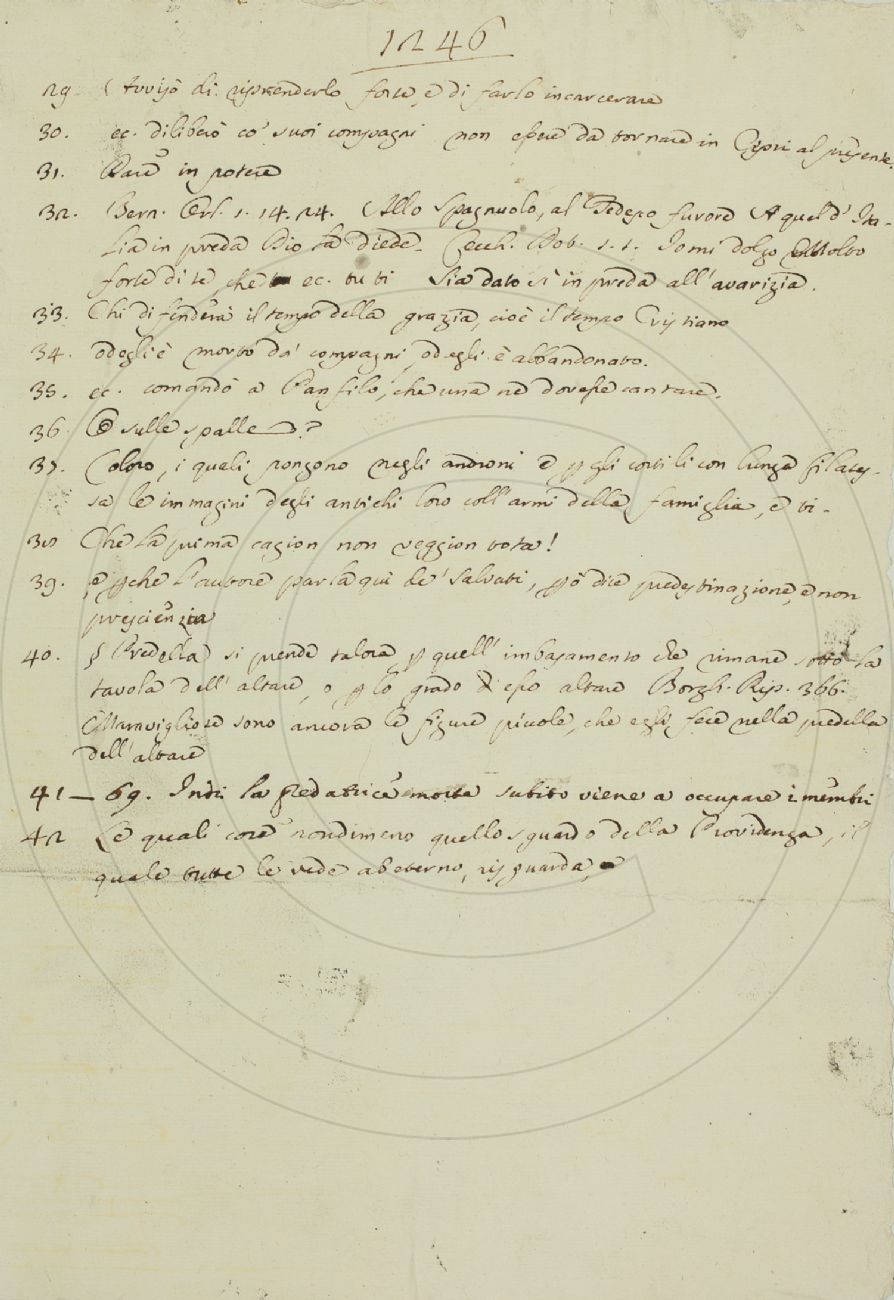 1246
29. Avvisò di riprenderlo forte, e di farlo incarcerare
30. ec. diliberò co' suoi compagni non essere da tornare in Cipri al presente.
31. Dare in potere
32. Bern. Orl. 1. 14. 24. Allo Spagnuolo, al Tedesco furore A quel d' Ita-
lia in preda Dio la diede. Cecch. Dot. 1. 1. Io mi dolgo
forte di te, che ec. tu ti sia dato sì in preda all' avarizia.
33. Chi difenderà il tempo della grazia, cioè il tempo Cristiano
34. od egli è morto da' compagni, od egli è abbandonato.
35. ec. comandò a Panfilo, che una ne dovesse cantare.
36. E sulle spalle?
37. Coloro, i quali pongono negli androni e p gli cortili con lunga filates-
sa le immagini degli antichi loro coll' armi della famiglia, e ti-
38 Che la prima cagion non veggion tota!
39. e pche l' autore parla qui de' salvati, pò dice predestinazione, e non
prescienzia
40. § Predella si prende talora p quell' imbasamento che rimane sotto la
tavola dell' altare, o p lo grado di esso altare Borgh. Rip. 366.
Maravigliose sono ancora le figure piccole, che egli fece nella predella
dell' altare
41 — 69. Indi la predatrice morte subito viene a occupare i membri
42 Le quali cose nondimeno quello sguardo della Providenza, il
quale tutte le vede ab eterno, risguarda, e